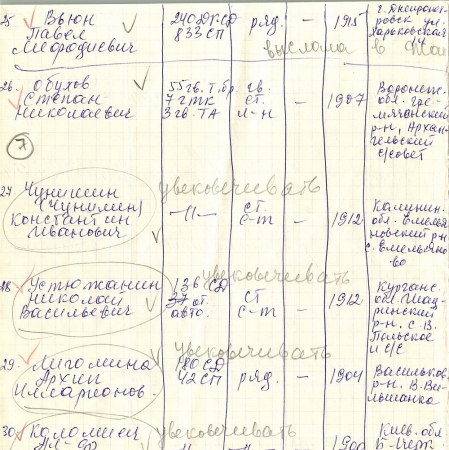 25 Вьюн Павел Мефодиевич 240 Кр.СД 833 СП ряд. — 1915 г. Днепропетровск ул. Харьковская 14
выслана в
26. Обухов Степан Николаевич 55 гв. т. бр. 7 гтк 3 гв. ТА гв. ст. л-н — 1907 Воронеж. обл. Гремяченский р-н, Архангельский с/совет
7
увековечивать
27 Чунишин (Чунилин) Константин Иванович —"— ст. с-т — 1912 Калинин. обл. Емельяновский р-н с. Емельяново
увековечивать
28. Устюжанин Николай Васильевич 136 СД 37 от. авто. ст с-т — 1912 Курганс. обл. Шадринский р-н. с. В. Польское и с/с
увековечивать
29. Лигомина Архип Илларионов. 180 СД 42 СП ряд. — 1904 Васильков. р-н. В. Вильшанка
увековечивать
30. Коломиец Киев. обл.